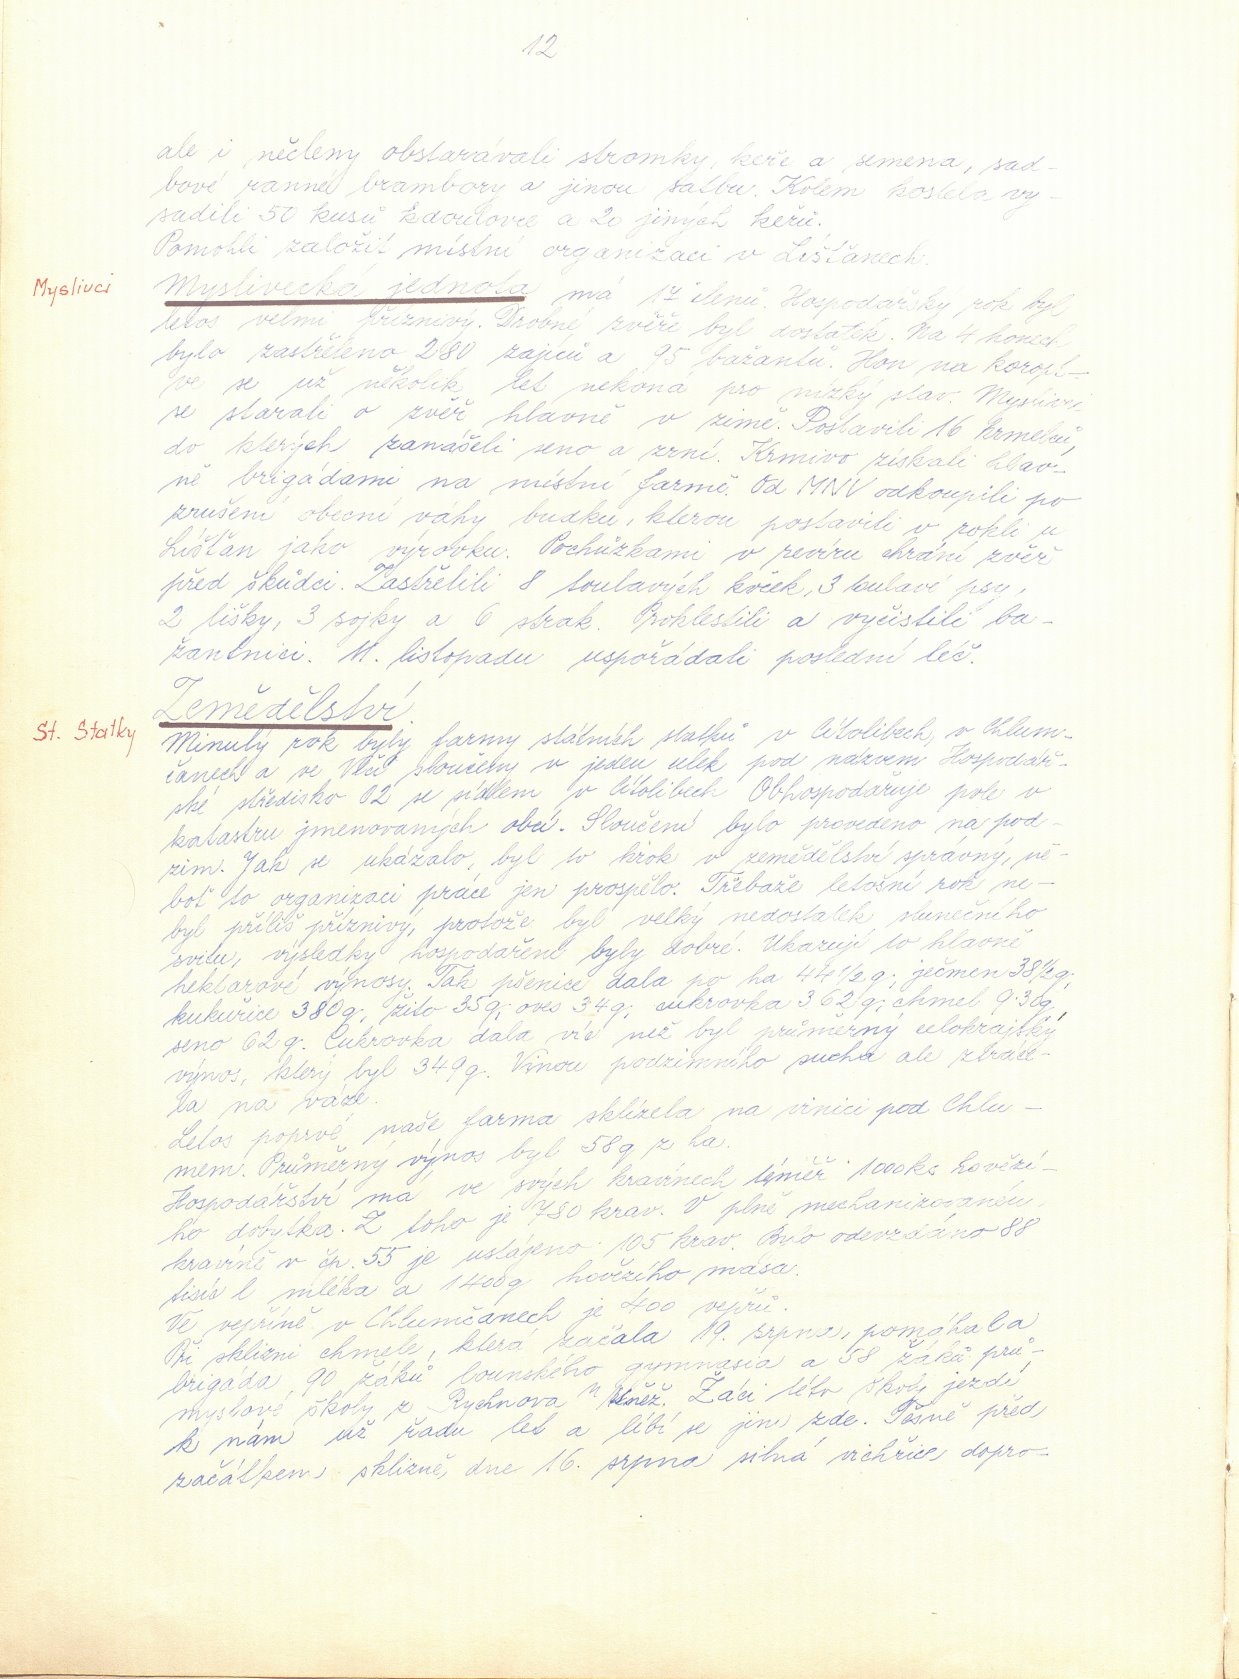 12
ale i nečleny obstarávali stromky, keře a semena, sad-
bové ranné brambory a jinou satbu. Kolem kostela vy-
sadili 50 kusů kdoulovce a 20 jiných keřů.
Pomohli založit místní organizaci v Lišťanech.
Myslivci
Myslivecká jednota má 17 členů. Hospodářsky rok byl
letos velmi příznivý. Drobné zvěře byl dostatek. Na 4 honech
bylo zastřeleno 280 zajíců a 95 bažantů. Hon na koropt-
ve se už několik let nekoná pro nízký stav. Myslivci
se starali o zvěř hlavně v zimě. Postavili 16 krmelců,
do kterých zanášeli seno a zrní. Krmivo získali hlav-
ně brigádami na místní farmě. Od MNV odkoupili po
zrušení obecní váhy budku, kterou postavili v rokli u
Lišťan jako výrovku. Pochůzkami v revíru chrání zvěř
před škůdci. Zastřelili 8 toulavých koček, 3 tulavé psy,
2 lišky, 3 sojky a 6 strak. Proklestili a vyčistili ba-
žantnici. 11. listopadu uspořádali poslední leč.
Zemědělství.
St. Statky
Minulý rok byly farmy státních statků v Cítolibech, v Chlum-
čanech a ve Vlčí sloučeny v jeden celek pod názvem Hospodář-
ské středisko 02 se sídlem v Cítolibech Obhospodařuje pole v
katastru jmenovaných obcí. Sloučení bylo provedeno na pod-
zim. Jak se ukázalo, byl to krok v zemědělství správný, ne-
boť to organizaci práce jen prospělo. Třebaže letošní rok ne-
byl příliš příznivý, protože byl velký nedostatek slunečního
svitu, výsledky hospodaření byly dobré. Ukazují to hlavně
hektarové výnosy. Tak pšenice dala po ha 44 1/2 q; ječmen 38 1/2 q;
kukuřice 380 q; žito 35 q; oves 34 q; cukrovka 362 q; chmel 9.30 q,
seno 62 q. Cukrovka dala víc než byl průměrný celokrajský
výnos, který byl 349 q. Vinou podzimního sucha ale ztrace-
la na váze.
Letos poprvé naše farma sklízela na vinici pod Chlu-
mem. Průměrný výnos byl 58 q z ha.
Hospodářství má ve svých kravínech téměř 1000 ks hovězí-
ho dobytka. Z toho je 780 krav. V plně mechanizovaném
kravíně v čp. 55 je ustájeno 105 krav. Bylo odevzdáno 88
tisíc l mléka a 1400 q hovězího masa.
Ve vepříně v Chlumčanech je 400 vepřů.
Při sklizni chmele, která začala 19. srpna, pomáhala
brigáda 90 žáků lounského gymnasia a 58 žáků prů-
myslové školy z Rychnova n. Kněž. Žáci této školy jezdí
k nám už řadu let a líbí se jim zde. Těsně před
začátkem sklizně, dne 16. srpna silná vichřice dopro-